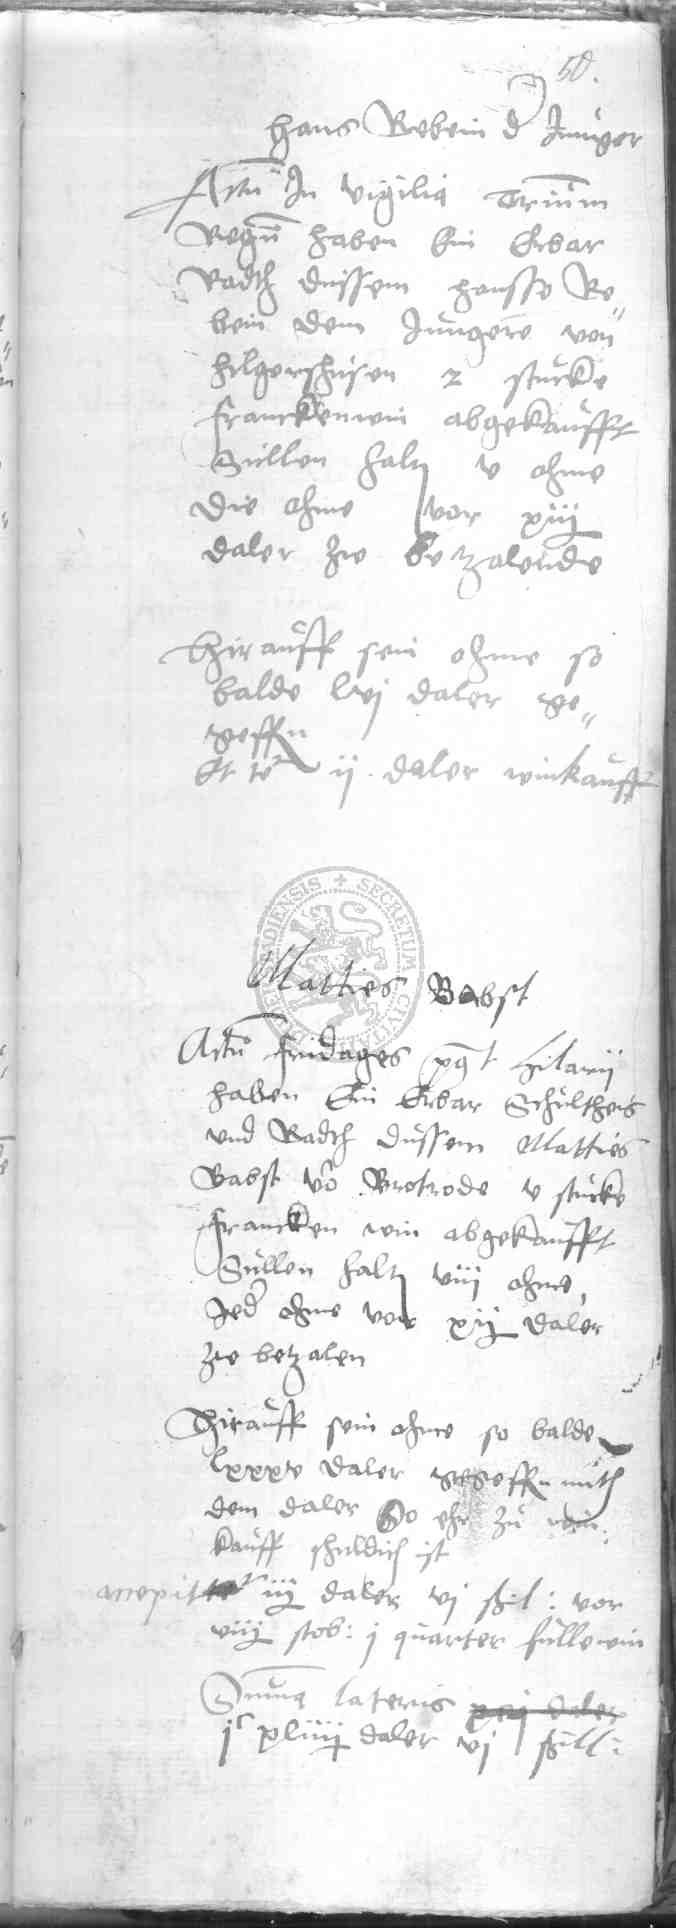 50.
Hans Rebein d Junger
Actu In vigilia Trium
Regu haben Ein Erbar
Radth dussem Hansse Re„
bein dem Jungere von
Hilgershusen 2 stucke
franckenwin abgekaufft
Sullen halt v ohme
die ohme vor xiij
daler zu betzalende
Hirauff sein ohme so
balde lvj daler ge„
geffn
Et ij daler winkauff
SECRETUM CIVITATIS
Matties Babst
Actu fridages post Hilarij
haben Ein Erbar Schultheis
und Radth dussem Matties
Babst vo Brotrode v stucke
francken win abgekaufft
Sullen halt viij ohme,
Jed ohme vor xij daler
zu betzalen
Hirauff sein ohme so balde
lxxxv daler gegeffn mith
dem daler So ehr zu win:
kauff schuldich ist
accepit iij daler vj schil: vor
viij stob: j quarter fullewin
Summa lateris daler
jc xliiij daler vj schill: